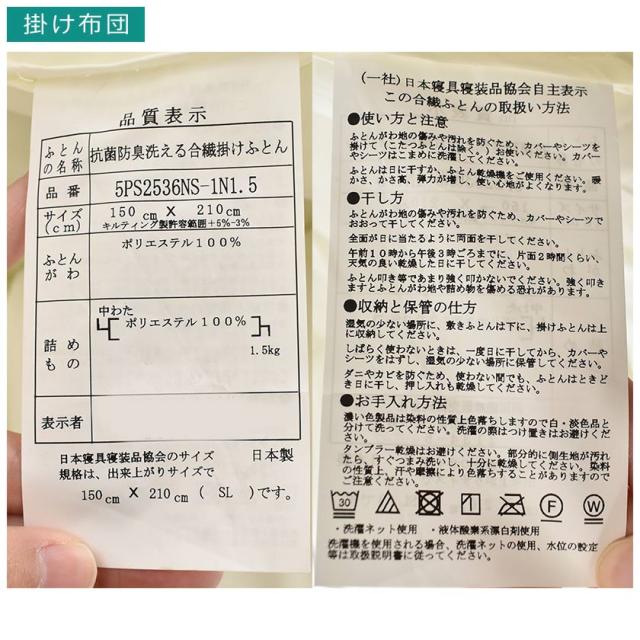 掛け布団
品質表示
ふとんの名称
抗菌防臭洗える合繊掛けふとん
品番
5PS2536NS-1N1.5
サイズ(cm)
150cm X 210cm
キルティング製許容範囲+5%-3%
ふとんがわ
ポリエステル100%
詰めもの
中わた
ポリエステル100%
1.5kg
表示者
日本寝具寝装品協会のサイズ
日本製
規格は、出来上がりサイズで
150cm X 210cm ( SL ) です。
(一社)日本寝具寝装品協会自主表示
この合繊ふとんの取扱い方法
●使い方と注意
ふとんがわ地の傷みや汚れを防ぐため、カバーやシーツを
掛けて(こたつふとんは除く。)お使いください。カバー
やシーツはこまめに洗濯してください。
ふとんは日に干すか、ふとん乾燥機をご使用ください。暖
かさ、かさ高、弾力が増し、使い心地がよくなります。
●干し方
ふとんがわ地の傷みや汚れを防ぐため、カバーやシーツで
おおって干してください。
全面が日に当たるように両面を干してください。
午前10時から午後3時ごろまでに、片面2時間くらい、
天気の良い乾燥した日に干してください。
ふとん叩き等であまり強く叩かないでください。強く叩き
ますとふとんがわ地や詰め物を傷める恐れがあります。
●収納と保管の仕方
湿気の少ない場所に、敷きふとんは下に、掛けふとんは上
に収納してください。
しばらく使わないときは、一度日に干してから、カバーや
シーツをはずし、湿気の少ない場所に保管してください。
ダニやカビを防ぐため、使わない間でも、ふとんはときど
き日に干し、押し入れも乾燥してください。
●お手入れ方法
濃い色製品は染料の性質上色落ちしますので白・淡色品と
分けて洗ってください。洗濯の際はつけ置きはお避けくだ
さい。
タンブラー乾燥はお避けください。部分的に側生地が汚れ
たら、すぐつまみ洗いし、十分に乾燥してください。染料
の性質上、汗や摩擦により色落ちすることがありますので
ご注意ください。
30 F W
・洗濯ネット使用 ・液体酸素系漂白剤使用
洗濯機を使用される場合、洗濯ネットの使用、水位の設定
等は取扱説明書に従ってください。